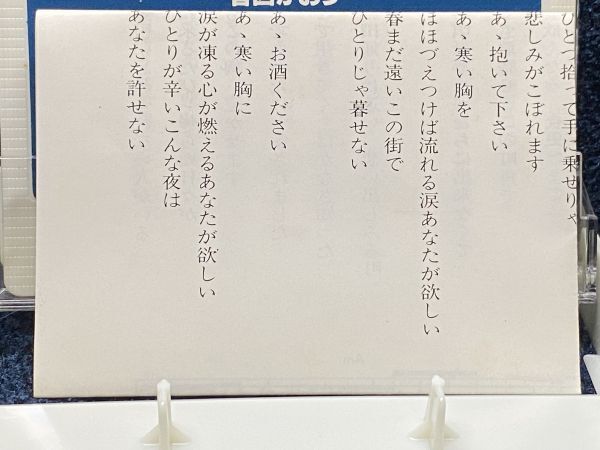 ひとつ拾って手に乗せりゃ
悲しみがこぼれます
あゝ抱いて下さい
あゝ寒い胸を
ほほづえつけば流れる涙あなたが欲しい
春まだ遠いこの街で
ひとりじゃ暮せない
あゝお酒ください
あゝ寒い胸に
涙が凍る心が燃えるあなたが欲しい
ひとりが辛いこんな夜は
あなたを許せない